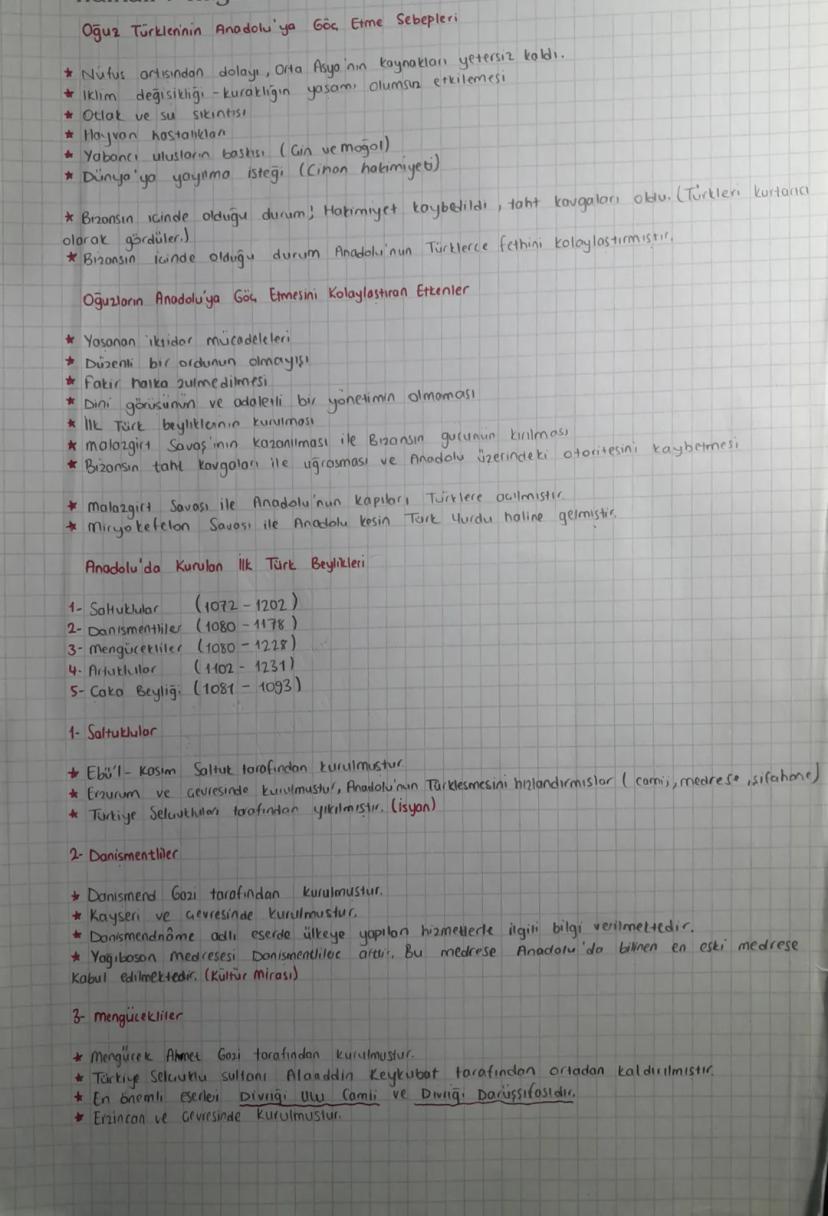 Oğuz Türklerinin Anadolu'ya Göç Etme Sebepleri
* Nüfus artısından dolayı, Orta Asya'nın kaynakları yetersiz kaldı.
* İklim değişikliği - kuraklığın yaşamı olumsuz etkilemesi
* Otlak ve su sıkıntısı
* Hayvan hastalıkları
* Yabancı ulusların baskısı (Çin ve moğol)
* Dünya'ya yayılma isteği (Cihan hakimiyeti)
* Bizansın içinde olduğu durum; Hakimiyet kaybedildi, taht kavgaları oldu. (Türkleri kurtarıcı
olarak gördüler.)
* Bizansın içinde olduğu durum Anadolu'nun Türklerce fethini kolaylaştırmıştır.
Oğuzların Anadolu'ya Göç Etmesini Kolaylaştıran Etkenler
* Yaşanan iktidar mücadeleleri
* Düzenli bir ordunun olmayışı
* Fakir halka zulmedilmesi
* Dini görüşünün ve adaletli bir yönetimin olmaması
* İlk Türk beyliklerinin kurulması
* malazgirt Savaş'ının kazanılması ile Bizansın gücünün kırılması
* Bizansın taht kavgaları ile uğraşması ve Anadolu üzerindeki otoritesini kaybetmesi
* malazgirt Savaşı ile Anadolu'nun kapıları Türklere açılmıştır
* Miryokefelon Savaşı ile Anadolu kesin Türk Yurdu haline gelmiştir.
Anadolu'da Kurulan İlk Türk Beylikleri
1- Saltuklular (1072 - 1202)
2- Danismentliler (1080 - 1178)
3- mengücekliler (1080 - 1228)
4- Artuklular (1102 - 1231)
5- Çaka Beyliği (1081 - 1093)
1- Saltuklular
* Ebü'l - Kasım Saltuk tarafından kurulmuştur
* Erzurum ve çevresinde kurulmuştur, Anadolu'nun Türkleşmesini hızlandırmışlar (camii, medrese, şifahane)
* Türkiye Selçukluları tarafından yıkılmıştır. (isyan)
2- Danismentliler
* Danismend Gazi tarafından kurulmuştur.
* Kayseri ve çevresinde kurulmuştur.
* Danismendnâme adlı eserde ülkeye yapılan hizmetlerle ilgili bilgi verilmektedir.
* Yağıbasan medresesi Danismentlilere aittir. Bu medrese Anadolu'da bilinen en eski medrese
Kabul edilmektedir. (Kültür mirası)
3- mengücekliler
* Mengücek Ahmet Gazi tarafından kurulmuştur.
* Türkiye Selçuklu sultanı Alaaddin Keykubat tarafından ortadan kaldırılmıştır.
* En önemli eserleri Divriği Ulu Camii ve Divriği Darüşşifasıdır.
* Erzincan ve çevresinde Kurulmuştur.